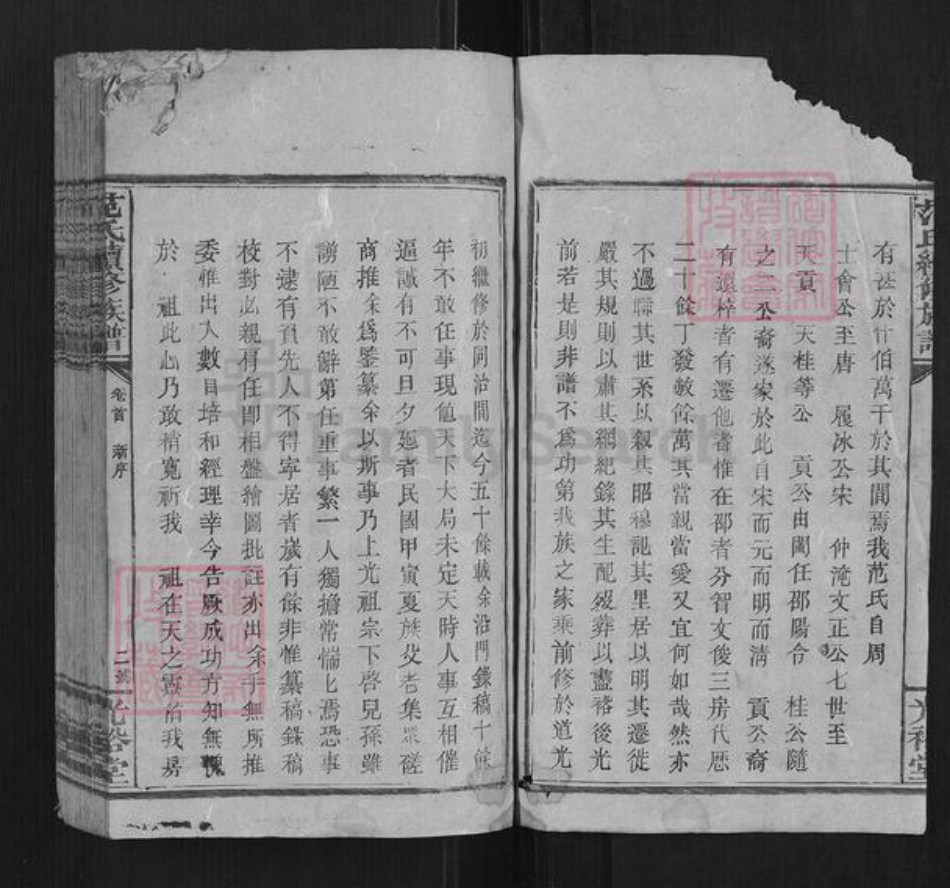 有甚於什伯萬千於其間焉我范氏自周
士會公至唐 履冰公宋 仲淹文正公七世至
天貢 天桂等公 貢公由閩任邵陽令 桂公隨
之二公裔遂家於此自宋而元而明而淸 貢公裔
有還梓者有遷他者惟在邵者分智文後三房代歷
二十餘丁發數餘萬其當親當愛又宜何如哉然亦
不過聯其世系以親其昭穆記其里居以明其遷徙
嚴其規則以肅其綱紀錄其生配歿葬以盡裕後光
前若是則非譜不爲功第我族之家乘前修於道光
初繼修於同治間迄今五十餘載余沿門錄稿十餘
年不敢任事現値天下大局未定天時人事互相催
逼誠有不可旦夕延者民國甲寅夏族父老集眾磋
商推余爲鑒纂余以斯事乃上光祖宗下啓兒孫雖
謭陋不敢辭第任重事繁一人獨擔常惴匕焉恐事
不逮有負先人不得寧居者歲有餘非惟纂稿錄稿
校對必親肩任即相盤繪圖批註亦出余手無所推
委惟出入數目培和經理幸今告厥成功方知無愧
於 祖此心乃敢稍寬祈我 祖在天之靈佑我房
范氏續修族譜
卷首 新序
二號
光裕堂